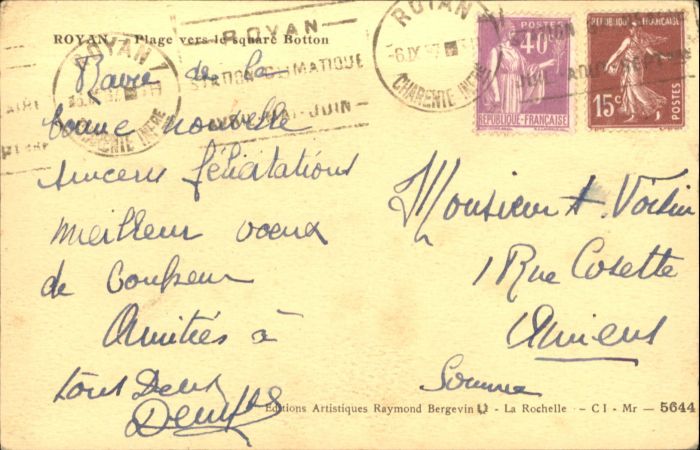 ROYAN - Plage vers le square Botton
ROYAN
STATION CLIMATIQUE
MAI-JUIN
ROYAN
6 IX 37
CHARENTE INFRE
POSTES
40c
REPUBLIQUE-FRANÇAISE
REPUBLIQUE FRANÇAISE
15c
POSTES
Ravie de la
bonne nouvelle
sinceres félicitations
meilleur voeux
de bonheur
Amitiés à
tous Deux
Monsieur A. Voisin
1 Rue Cosette
Amiens
Somme
Editions Artistiques Raymond Bergevin - La Rochelle - CI - Mr - 5644